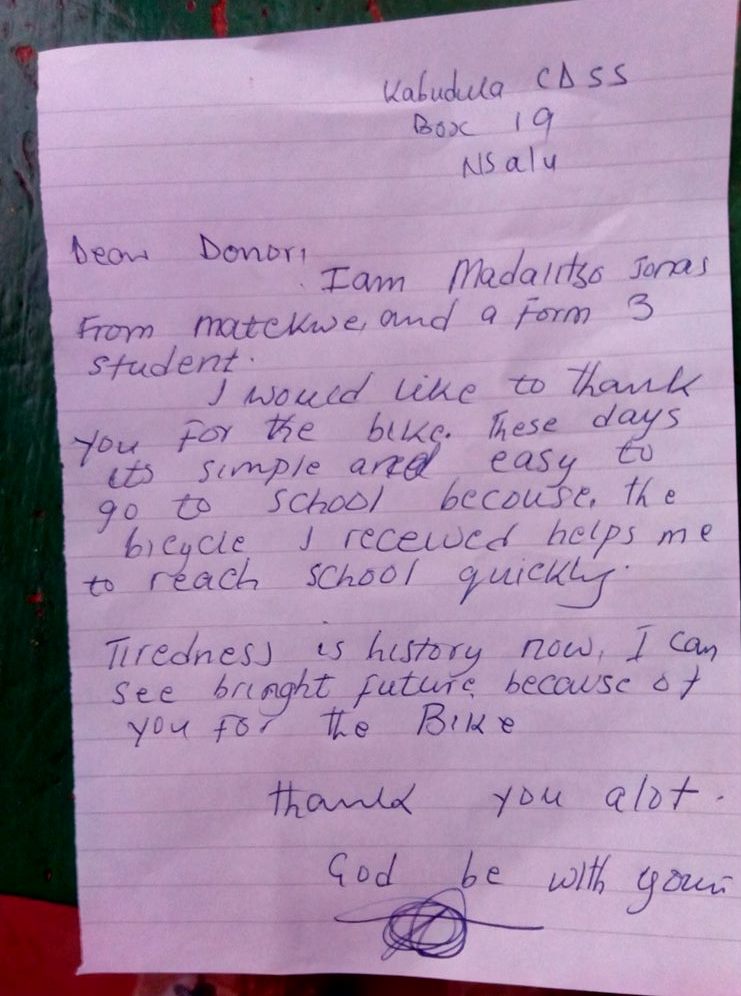 Kabudula CDSS
Box 19
NSalu
Dear Donor,
I am Madalitso Jonas
From matekwe, and a Form 3
student.
I would like to thank
you for the bike. These days
its simple and easy to
go to school becouse, the
bicycle I received helps me
to reach school quickly.
Tiredness is history now, I can
see bringht future because of
you for the Bike
thank you alot.
God be with you